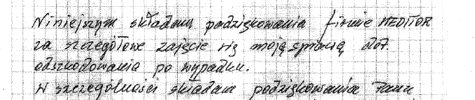 Niniejszym składam podziękowania firmie MEDITOR
za szczegółowe zajęcie się moją sprawą dot.
odszkodowania po wypadku.
W szczególności składam podziękowania Panu